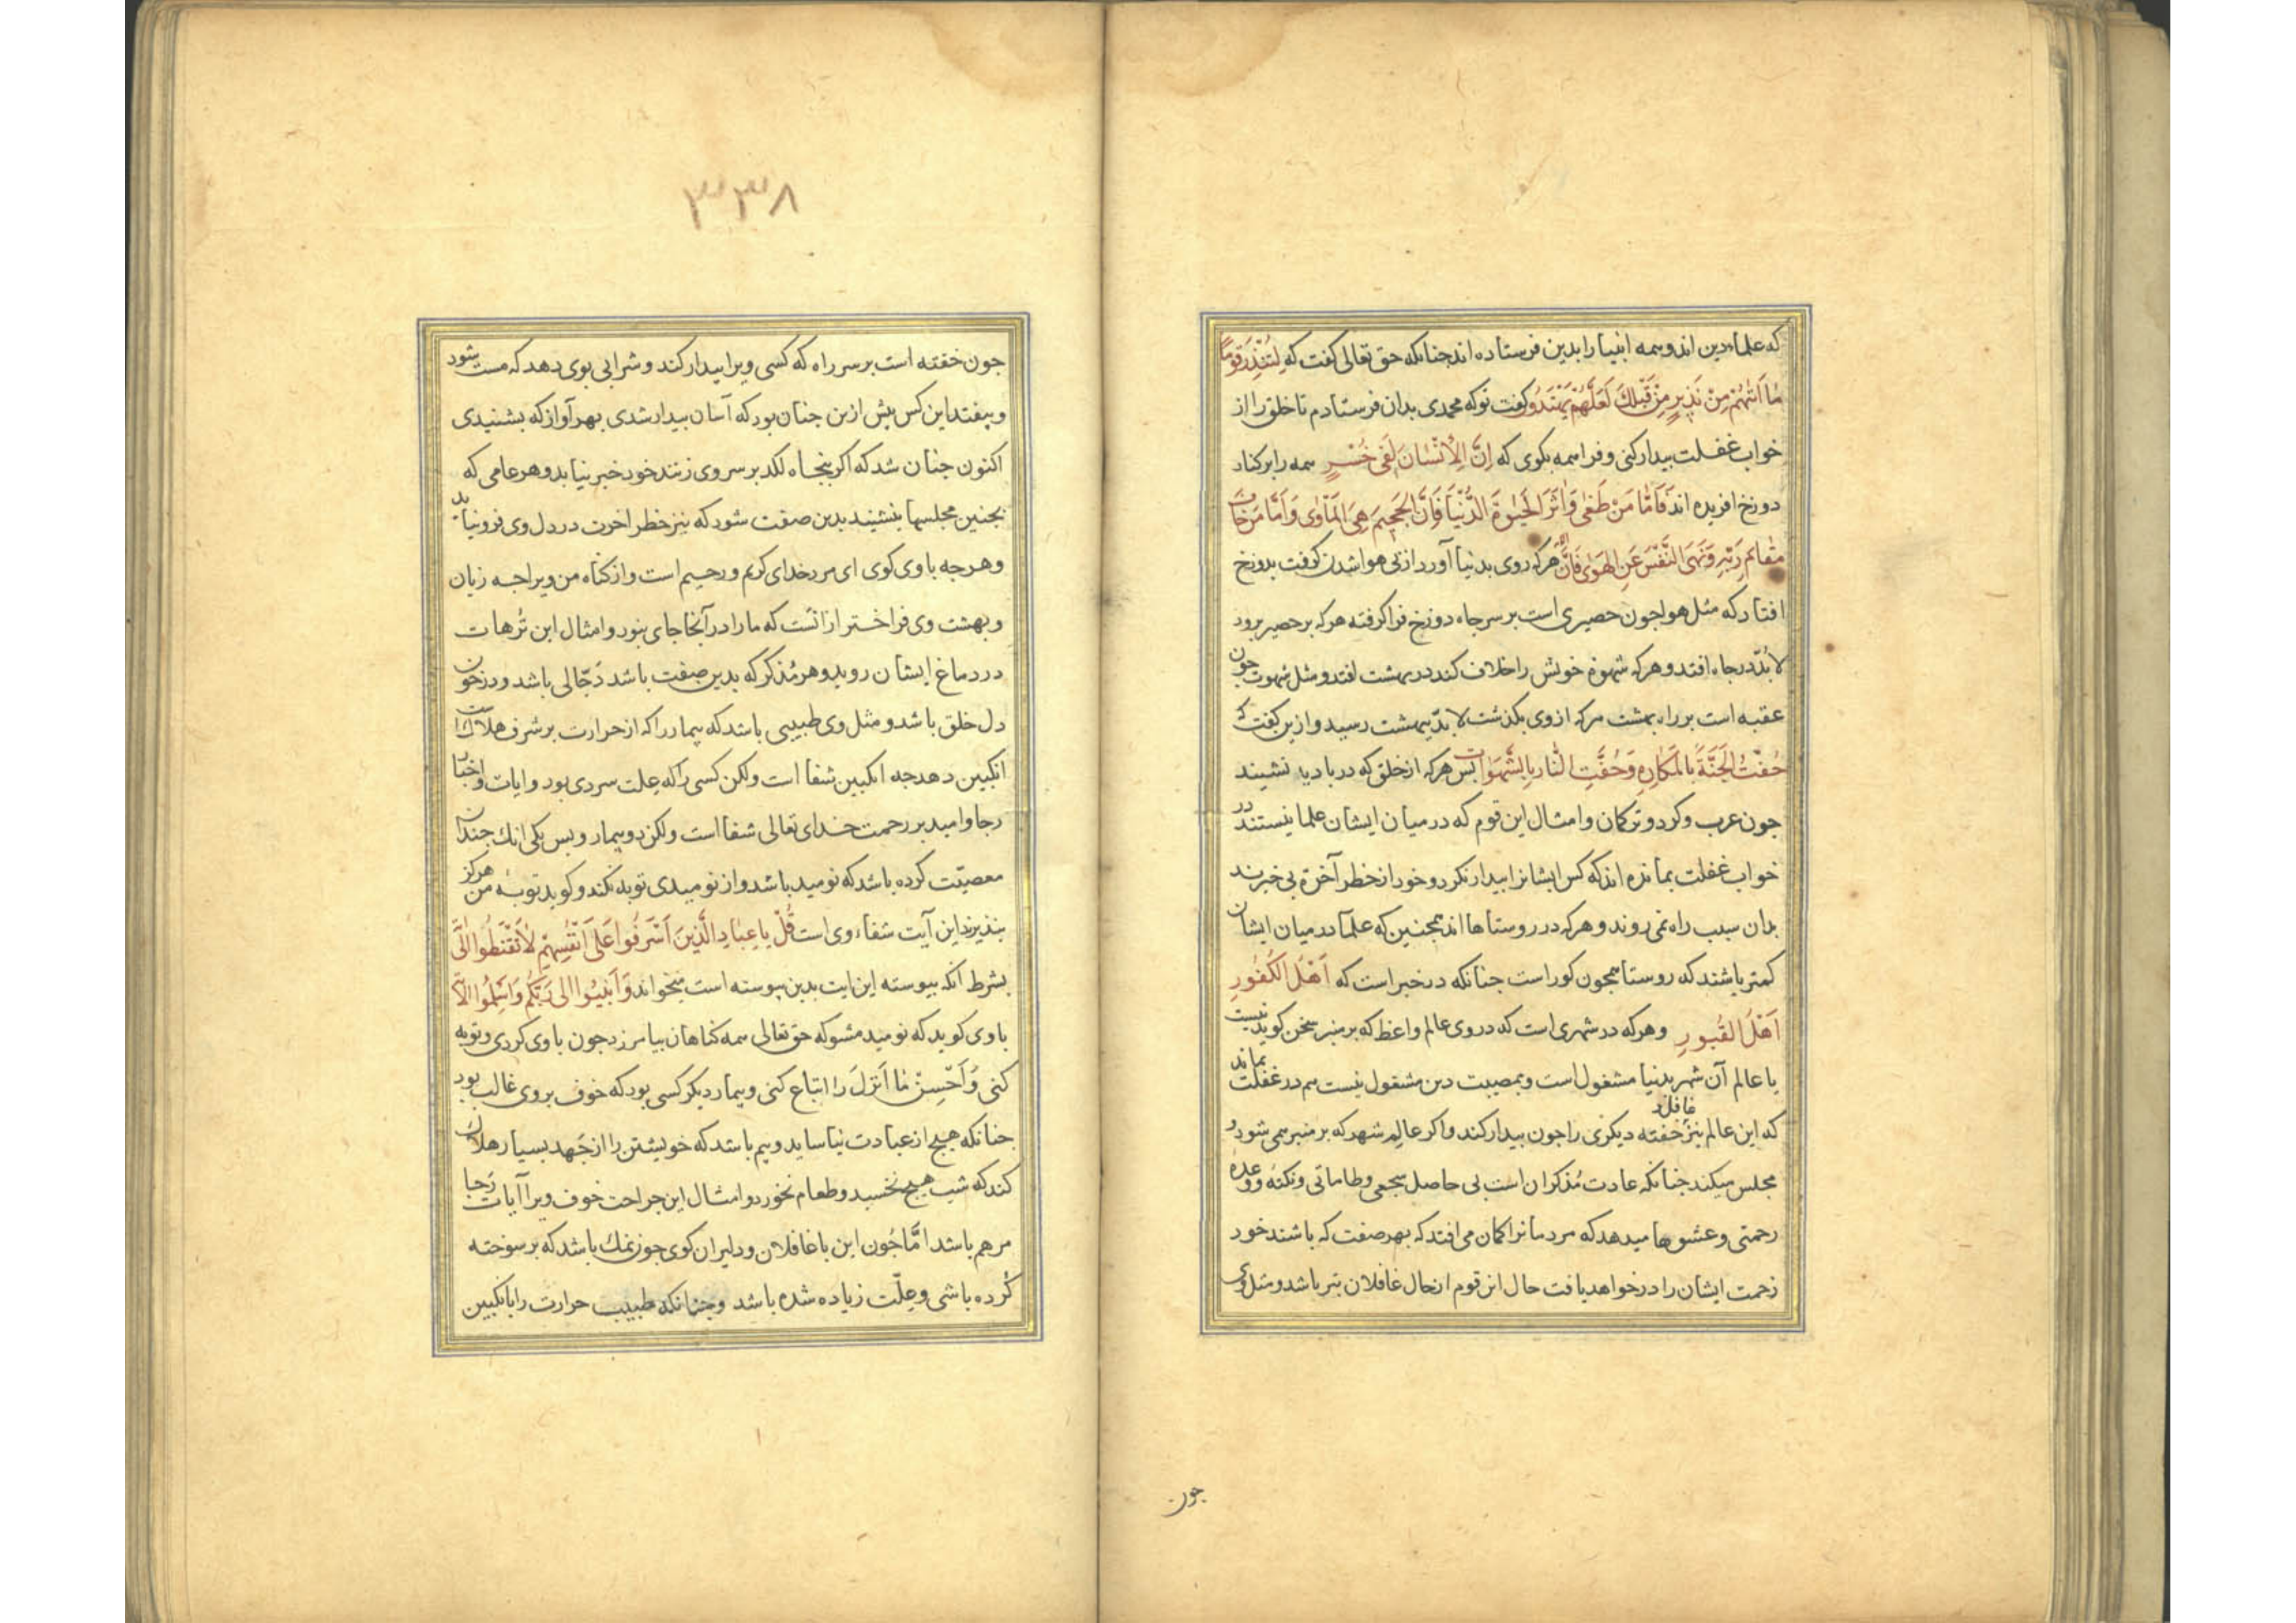 که علماء دین اند و همه انبیا را بدین فرستاده اند جنانکه حق تعالی کفت که لِتُنْذِرَ قَوْمًا
مٰا اَتٰیهُمْ مِنْ نَذٖیرٍ مِنْ قَبْلِكَ لَعَلَّهُمْ یَهْتَدُونَ کفت تو که محمدی بدان فرستادم تا خلق را از
خواب غفلت بیدار کنی و فرا همه بکوی که اِنَّ الْاِنْسٰانَ لَفٖی خُسْرٍ همه را بر کنار
دوزخ افریده اند فَاَمّٰا مَنْ طَغٰی وَاٰثَرَ الْحَیٰوةَ الدُّنْیٰا فَاِنَّ الْجَحٖیمَ هِیَ الْمَاْوٰی وَاَمّٰا مَنْ خٰافَ
مَقٰامَ رَبِّهٖ وَنَهَی النَّفْسَ عَنِ الْهَوٰی فَاِنَّ هر که روی بدنیا آورد از پی هوا شدن کرفت بدوزخ
افتاد که مثل هوا جون حصیری است بر سر جاه دوزخ فرا کرفته هر که بر حصیر برود
لا بدّ در جاه افتد و هر که شهوة خویش را خلاف کند در بهشت افتد و مثل شهوت جون
عقبه است بر راه بهشت هر که از وی بکذشت لا بدّ ببهشت رسید و ازین کفت که
حُفَّتِ الْجَنَّةُ بِالْمَكٰارِهِ وَحُفَّتِ النّٰارُ بِالشَّهَوٰاتِ بس هر که از خلق که در بادیه نشیند
جون عرب و کرد و ترکمان و امثال این قوم که در میان ایشان علما نیستند در
خواب غفلت بمانده اند که کس ایشانرا بیدار نکرد و خود از خطر آخرة بی خبرند
بدان سبب راه نمی روند و هر که در روستاها اند همجنین که علما در میان ایشان
کمتر باشند که روستا همجون کور است جنانکه در خبر است که اَهْلُ الْكُفُورِ
اَهْلُ الْقُبُورِ و هر که در شهری است که در وی عالم واعظ که بر منبر سخن کوید نیست
یا عالم آن شهر بدنیا مشغول است و بمصیبت دین مشغول نیست هم در غفلت بماند
که این عالم نیز غافلْ خفته دیکری را جون بیدار کند و اکر عالم شهر که بر منبر می شود و
مجلس میکند جنانکه عادت مُذکران است بی حاصل سجعی و طاماتی و نکتهٔ و وعدهٔ
رحمتی و عشوها میدهد که مردمانرا کمان می افتد که بهر صفت که باشند خود
رحمت ایشان را در خواهد یافت حال این قوم از حال غافلان بتر باشد و مثل وی
جون
٣٣٨
جون خفته است بر سر راه که کسی ویرا بیدار کند و شرابی بوی دهد که مست شود
و بیفتد این کس بیش ازین جنان بود که آسان بیدار شدی بهر آواز که بشنیدی
اکنون جنان شد که اکر بنجاه لکد بر سر وی زنند خود خبر نیابد و هر عامی که
بجنین مجلسها بنشیند بدین صفت شود که نیز خطر اخرت در دل وی فرو نیاید
و هر جه با وی کوی ای مرد خدای کریم و رحیم است و از کناه من ویرا جه زیان
و بهشت وی فراختر ازانست که ما را در آنجا جای نبود و امثال این تُرهات
در دماغ ایشان روید و هر مُذکر که بدین صفت باشد دَجّالی باشد و در خون
دل خلق باشد و مثل وی طبیبی باشد که بیمار را که از حرارت بر شرف هلاك است
انکبین دهد جه انکبین شفا است ولکن کسی را که علت سردی بود و ایات و اخبار
رجا و امید بر رحمت خدای تعالی شفا است ولکن دو بیمار و بس یکی انك جندان
معصیّت کرده باشد که نومید باشد و از نومیدی توبه نکند و کوید توبهٔ من هرکز
بنذیرند این آیت شفاء وی است قُلْ یٰا عِبٰادِ الَّذٖینَ اَسْرَفُوا عَلٰی اَنْفُسِهِمْ لٰا تَقْنَطُوا
بشرط آنکه بیوسته این ایت بدین بیوسته است میخواند وَاَنٖیبُوا اِلٰی رَبِّكُمْ وَاَسْلِمُوا
با وی کوید که نومید مشو که حق تعالی همه کناهان بیامرزد جون با وی کردی و توبه
کنی وَ اَحْسِنْ مٰا اَنْزَلَ را اتباع کنی و بیمار دیکر کسی بود که خوف بر وی غالب بود
جنانکه هیج از عبادت نیاساید و بیم باشد که خویشتن را از جَهد بسیار هلاك
کند که شب هیج نخسبد و طعام نخورد و امثال این جراحت خوف ویرا آیات رَجا
مرهم باشد امَّا جُون این با غافلان و دلیران کوی جوز نمك باشد که بر سوخته
کرده باشی و علّت زیاده شده باشد و جنانکه طبیب حرارت را بانکبین